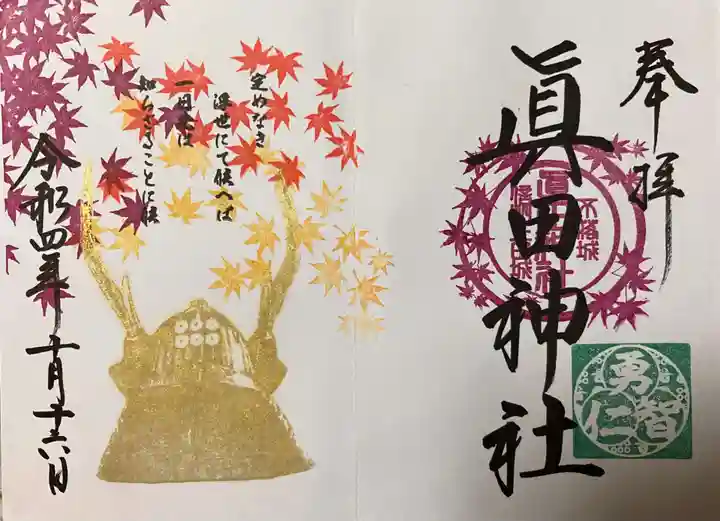 奉拝
眞田神社
不落城
勇
智
仁
定めなき
浮世にて候へば
一日先は
知らざることに候
令和四年
十月十六日